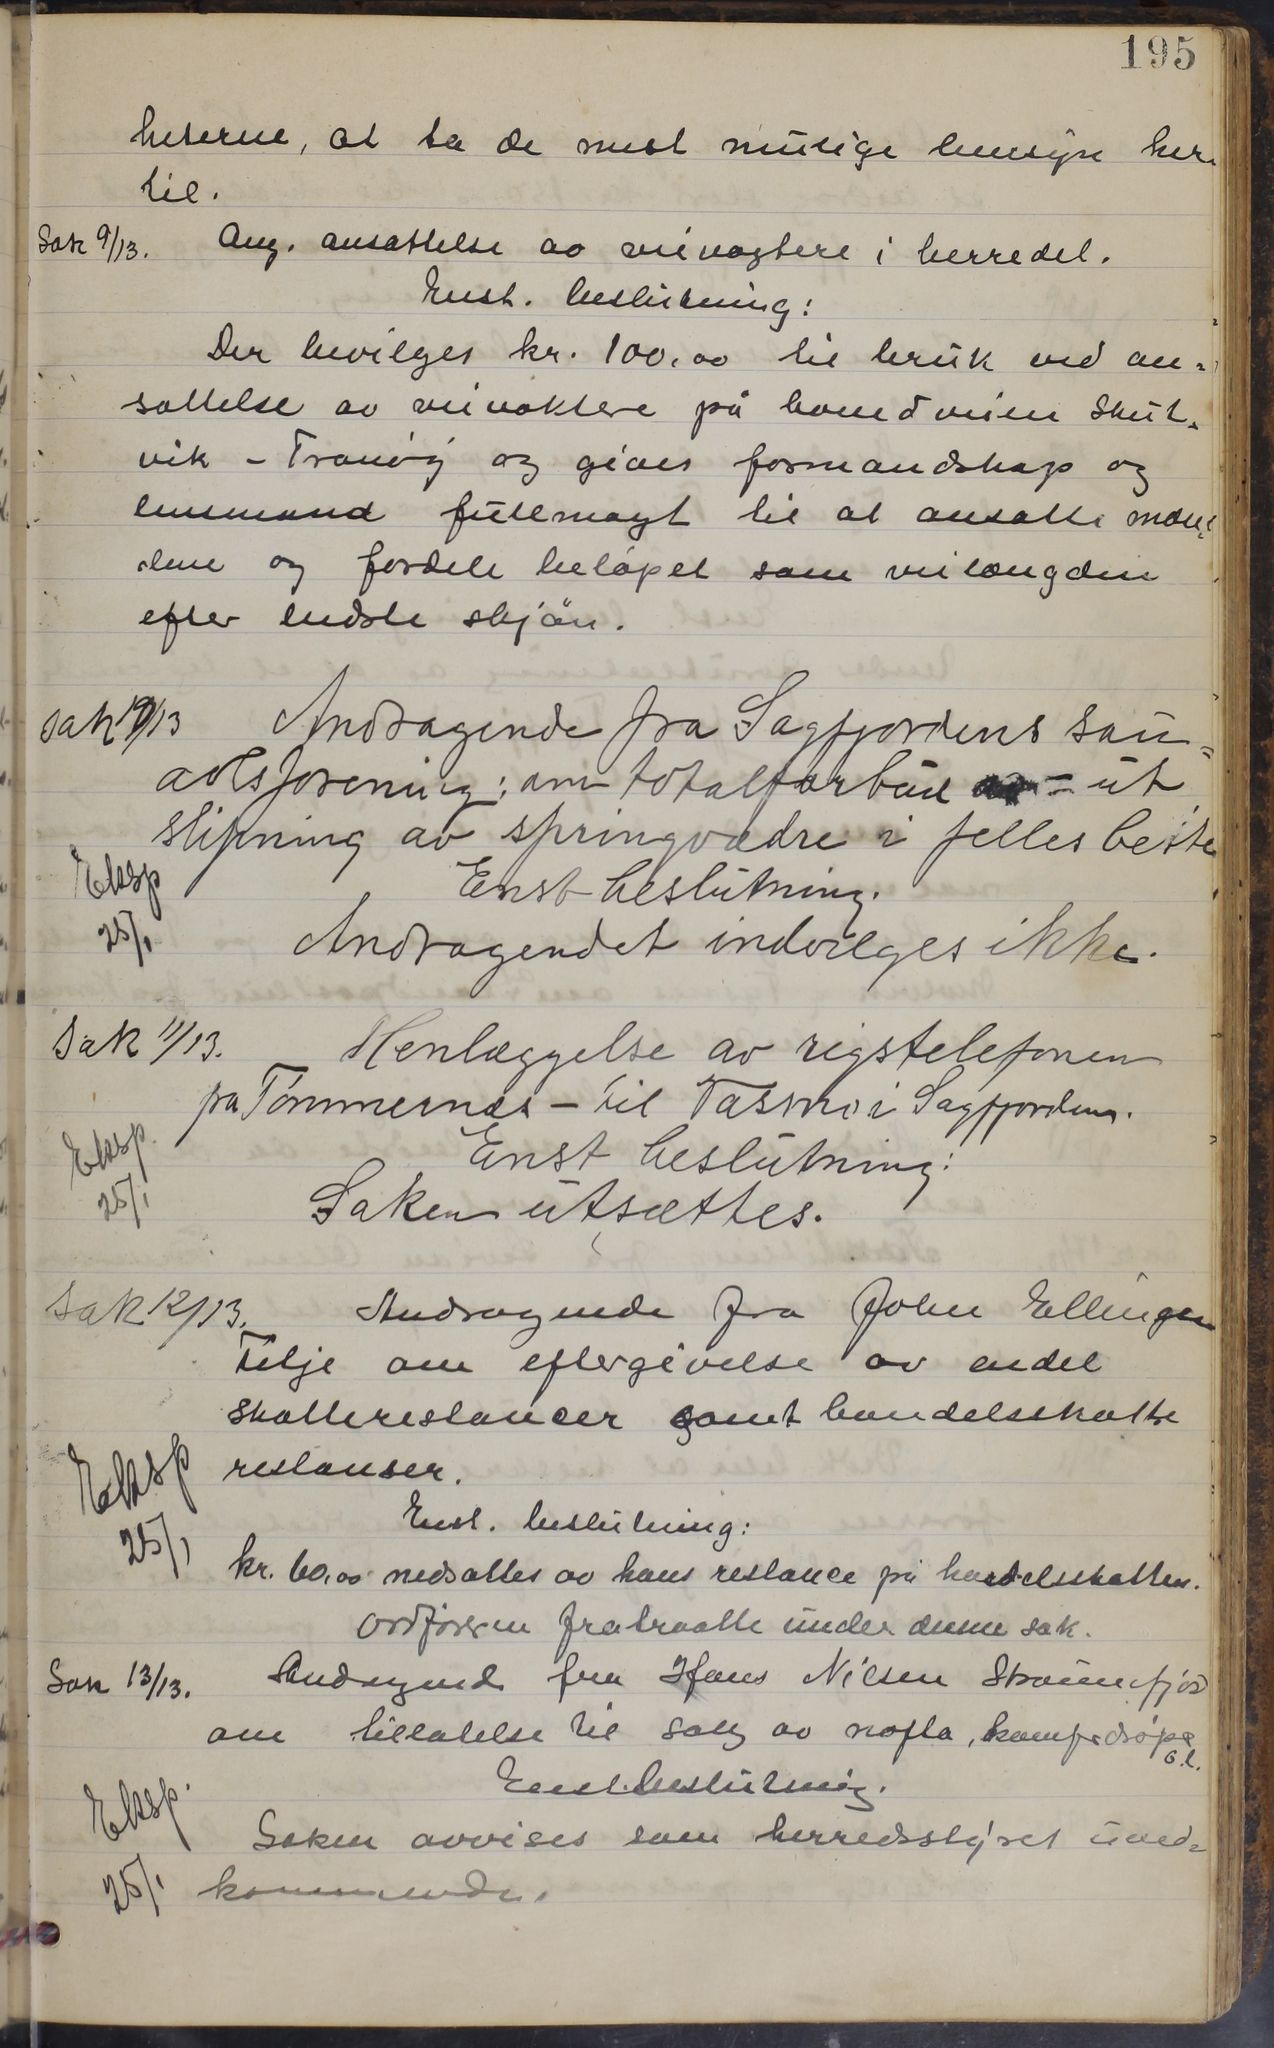 195
heterne, at ta de mest mulige hensyn her-
til.
Sak 9/13. Ang. ansættelse av veivogtere i herredet.
Enst. beslutning:
Der bevilges kr. 100,00 til bruk ved an-
sættelse av veivoktere på hovedveien Skut-
vik - Tranøy og gives formandskap og
lensmand fullmagt til at ansætte mæn-
dene og fordele beløpet som veilængden
efter bedste skjøn.
Sak 10/13 Andragende fra Sagfjordens sau-
avlsforening; om totalforbud - ut
slipning av springvædre i felles beite
Eksp Enst beslutning.
25/1 Andragendet indvilges ikke.
Sak 11/13. Henlæggelse av rigstelefonen
på Tømmernes - til Tasmo i Sagfjorden.
Eksp. Enst beslutning:
25/1 Saken utsættes.
Sak 12/13. Andragende fra John Ellingsen
Tilje om eftergivelse av endel
skatterestancer samt handelsskatte
Eksp restanser.
25/1 Enst. beslutning:
kr. 60,00 nedsættes av hans restance på handelsskatten.
Ordføreren fratraatte under denne sak.
Sak 13/13. Andragende fra Hans Nilsen Straumfjord
om tillatelse til salg av nafta, kamferdråpe
o.l.
Eksp. Enst. beslutning.
Saken avvises som herredsstyret uved-
25/1 kommende.